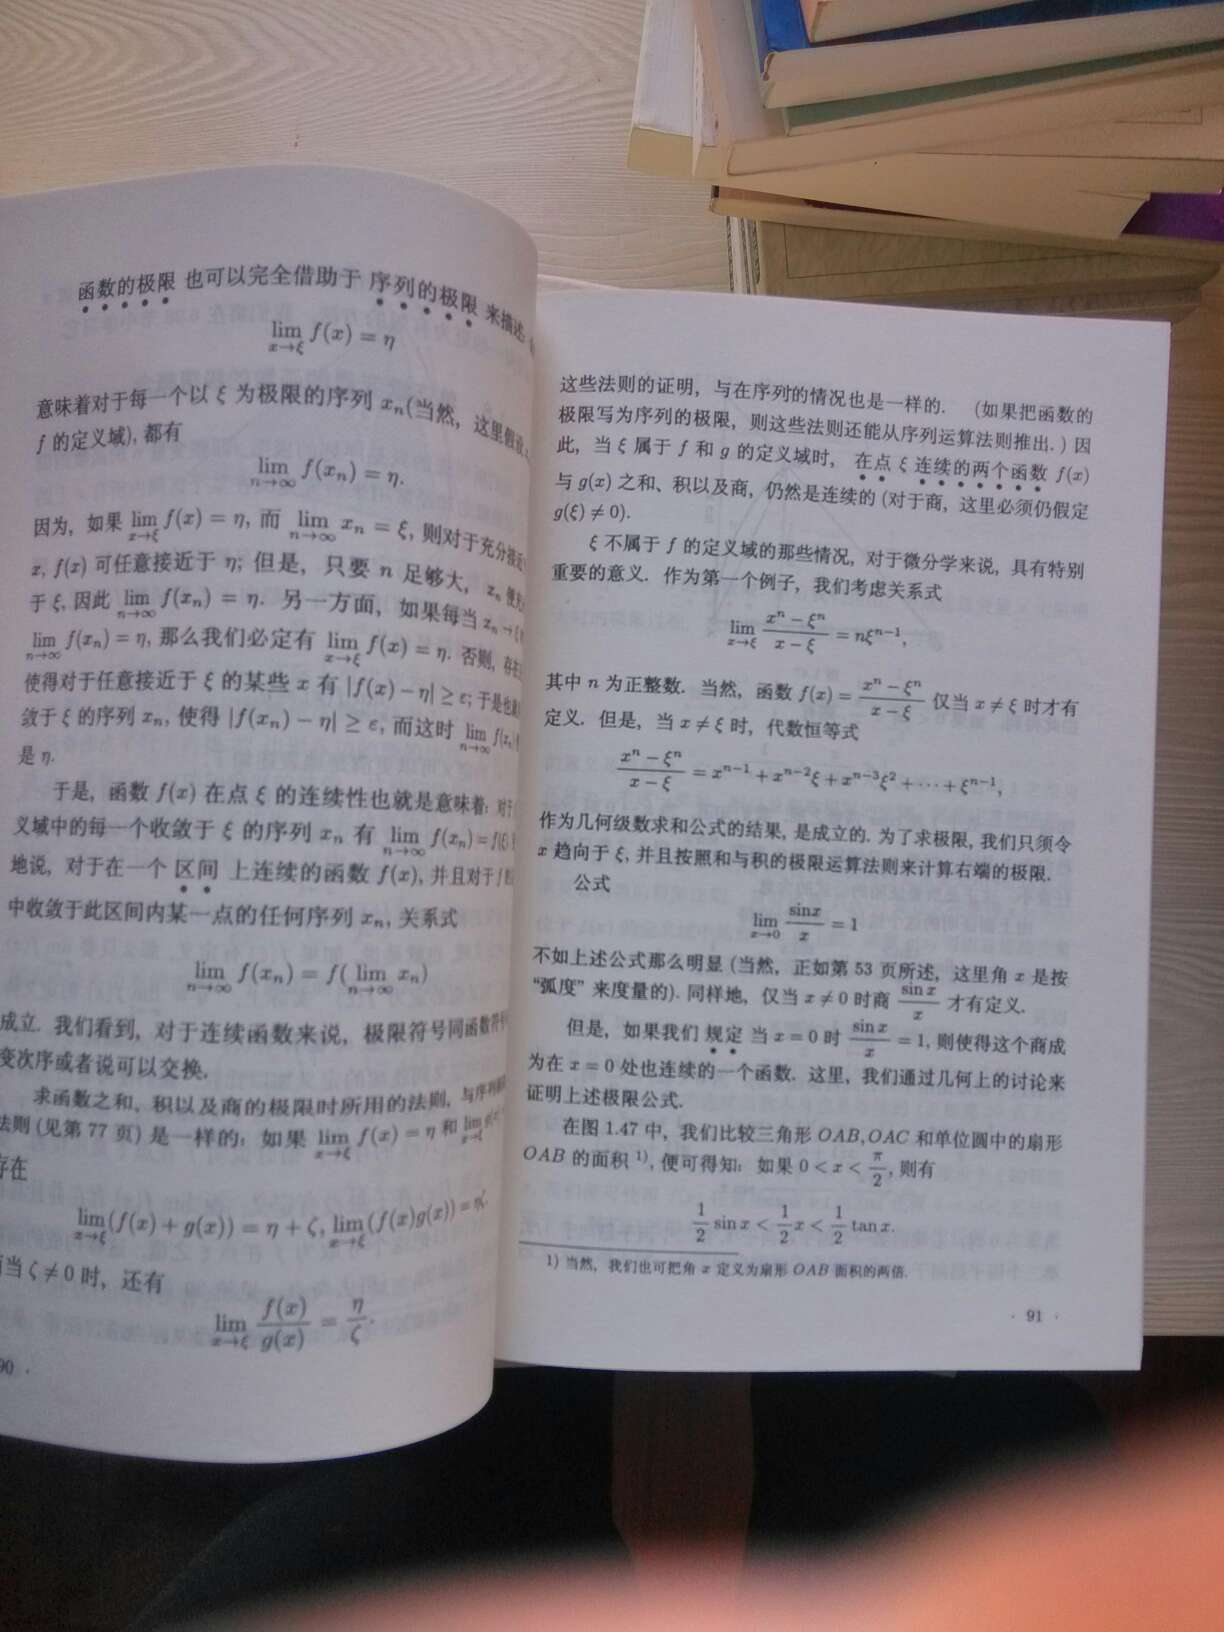 函数的极限 也可以完全借助于 序列的极限 来描述:
lim_{x→ξ} f(x) = η
意味着对于每一个以 ξ 为极限的序列 x_n(当然, 这里假设
f 的定义域), 都有
lim_{n→∞} f(x_n) = η.
因为, 如果 lim_{x→ξ} f(x) = η, 而 lim_{n→∞} x_n = ξ, 则对于充分接近
x, f(x) 可任意接近于 η; 但是, 只要 n 足够大, x_n 便
于 ξ, 因此 lim_{n→∞} f(x_n) = η. 另一方面, 如果每当 x_n→ξ
lim_{n→∞} f(x_n) = η, 那么我们必定有 lim_{x→ξ} f(x) = η. 否则, 存在
使得对于任意接近于 ξ 的某些 x 有 |f(x) − η| ≥ ε; 于是也
敛于 ξ 的序列 x_n, 使得 |f(x_n) − η| ≥ ε, 而这时 lim_{n→∞} f(x_n)
是 η.
于是, 函数 f(x) 在点 ξ 的连续性也就是意味着: 对于
义域中的每一个收敛于 ξ 的序列 x_n 有 lim_{n→∞} f(x_n) = f(ξ)
地说, 对于在一个 区间 上连续的函数 f(x), 并且对于 f
中收敛于此区间内某一点的任何序列 x_n, 关系式
lim_{n→∞} f(x_n) = f(lim_{n→∞} x_n)
成立. 我们看到, 对于连续函数来说, 极限符号同函数符号
变次序或者说可以交换.
求函数之和, 积以及商的极限时所用的法则, 与序列
法则 (见第 77 页) 是一样的: 如果 lim_{x→ξ} f(x) = η 和 lim_{x→ξ} g(x)
存在
lim_{x→ξ}(f(x) + g(x)) = η + ζ, lim_{x→ξ}(f(x)g(x)) = ηζ.
当 ζ ≠ 0 时, 还有
lim_{x→ξ} f(x)/g(x) = η/ζ.
90 ·
这些法则的证明, 与在序列的情况也是一样的. (如果把函数的
极限写为序列的极限, 则这些法则还能从序列运算法则推出.) 因
此, 当 ξ 属于 f 和 g 的定义域时, 在点 ξ 连续的两个函数 f(x)
与 g(x) 之和、积以及商, 仍然是连续的 (对于商, 这里必须仍假定
g(ξ) ≠ 0).
ξ 不属于 f 的定义域的那些情况, 对于微分学来说, 具有特别
重要的意义. 作为第一个例子, 我们考虑关系式
lim_{x→ξ} (x^n − ξ^n)/(x − ξ) = nξ^{n−1},
其中 n 为正整数. 当然, 函数 f(x) = (x^n − ξ^n)/(x − ξ) 仅当 x ≠ ξ 时才有
定义. 但是, 当 x ≠ ξ 时, 代数恒等式
(x^n − ξ^n)/(x − ξ) = x^{n−1} + x^{n−2}ξ + x^{n−3}ξ^2 + ··· + ξ^{n−1},
作为几何级数求和公式的结果, 是成立的. 为了求极限, 我们只须令
x 趋向于 ξ, 并且按照和与积的极限运算法则来计算右端的极限.
公式
lim_{x→0} sinx/x = 1
不如上述公式那么明显 (当然, 正如第 53 页所述, 这里角 x 是按
“弧度” 来度量的). 同样地, 仅当 x ≠ 0 时商 sin x/x 才有定义.
但是, 如果我们 规定 当 x = 0 时 sin x/x = 1, 则使得这个商成
为在 x = 0 处也连续的一个函数. 这里, 我们通过几何上的讨论来
证明上述极限公式.
在图 1.47 中, 我们比较三角形 OAB, OAC 和单位圆中的扇形
OAB 的面积 1), 便可得知: 如果 0 < x < π/2, 则有
1/2 sin x < 1/2 x < 1/2 tan x.
1) 当然, 我们也可把角 x 定义为扇形 OAB 面积的两倍.
· 91 ·